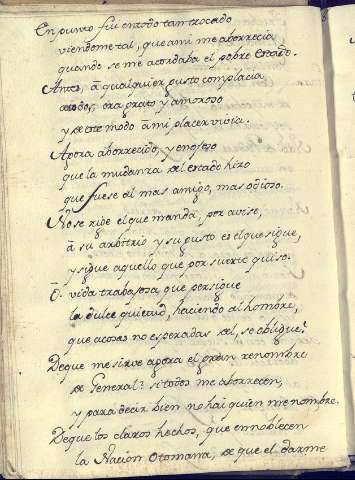 En punto fui en todo tan trocado
viendome tal, que ami me aborrecia
quando se me acordaba el pobre estado.
Antes, a qualquier gusto complacia
a todos, era grato y amoroso
y de este modo â mi placer vivia.
Agora aborrecido, y enojoso
que la mudanza del estado hizo
que fuese al mas amigo, mas odioso.
No se rige el que manda, por aviso,
â su arbitrio y su gusto es el que sigue,
y sigue aquello que por suerte quiso.
O vida trabajosa que persigue
la dulce quietud, haciendo al hombre,
que a cosas no esperadas el, se obligue!
De que me sirve agora el gran renombre
de General? si todos me aborrecen,
y para decir bien no hai quien me nombre.
De que los claros hechos, que ennoblecen
la Nacion Otomana, de que el darme